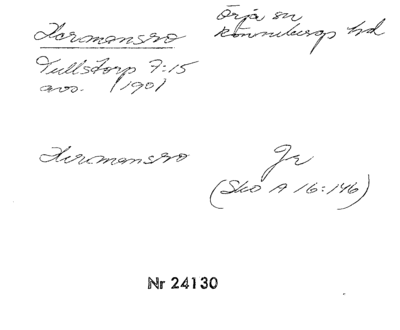 Hermansro
Örja sn
Rönnebergs hd
Tullstorp 7:15
avs. (1901
Hermansro
Jr
(Sko A 16:146)
Nr 24130